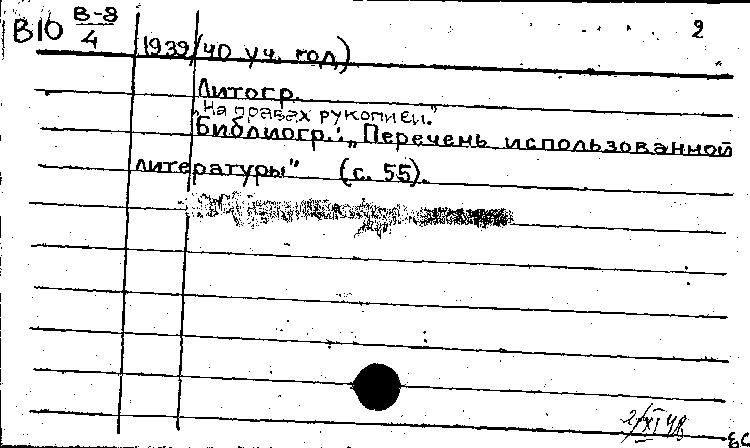 В10 В-8/4
2
1939/40 уч. год)
Литогр.
„На правах рукописи."
Библиогр.: „Перечень использованной
литературы" (с. 55).
2/XI 48